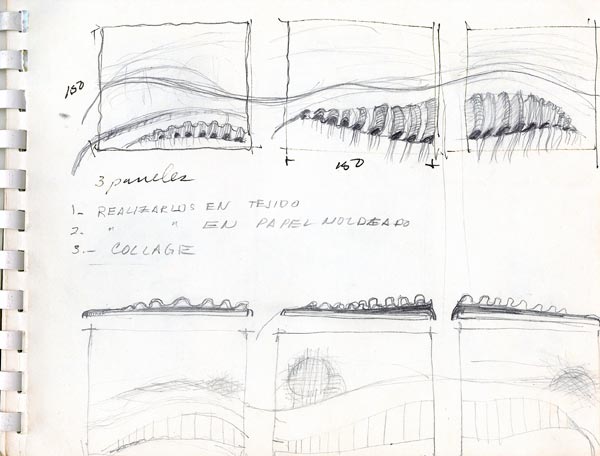 150
150
3 paneles
1- REALIZARLOS EN TEJIDO
2. " " EN PAPEL MOLDEADO
3.- COLLAGE